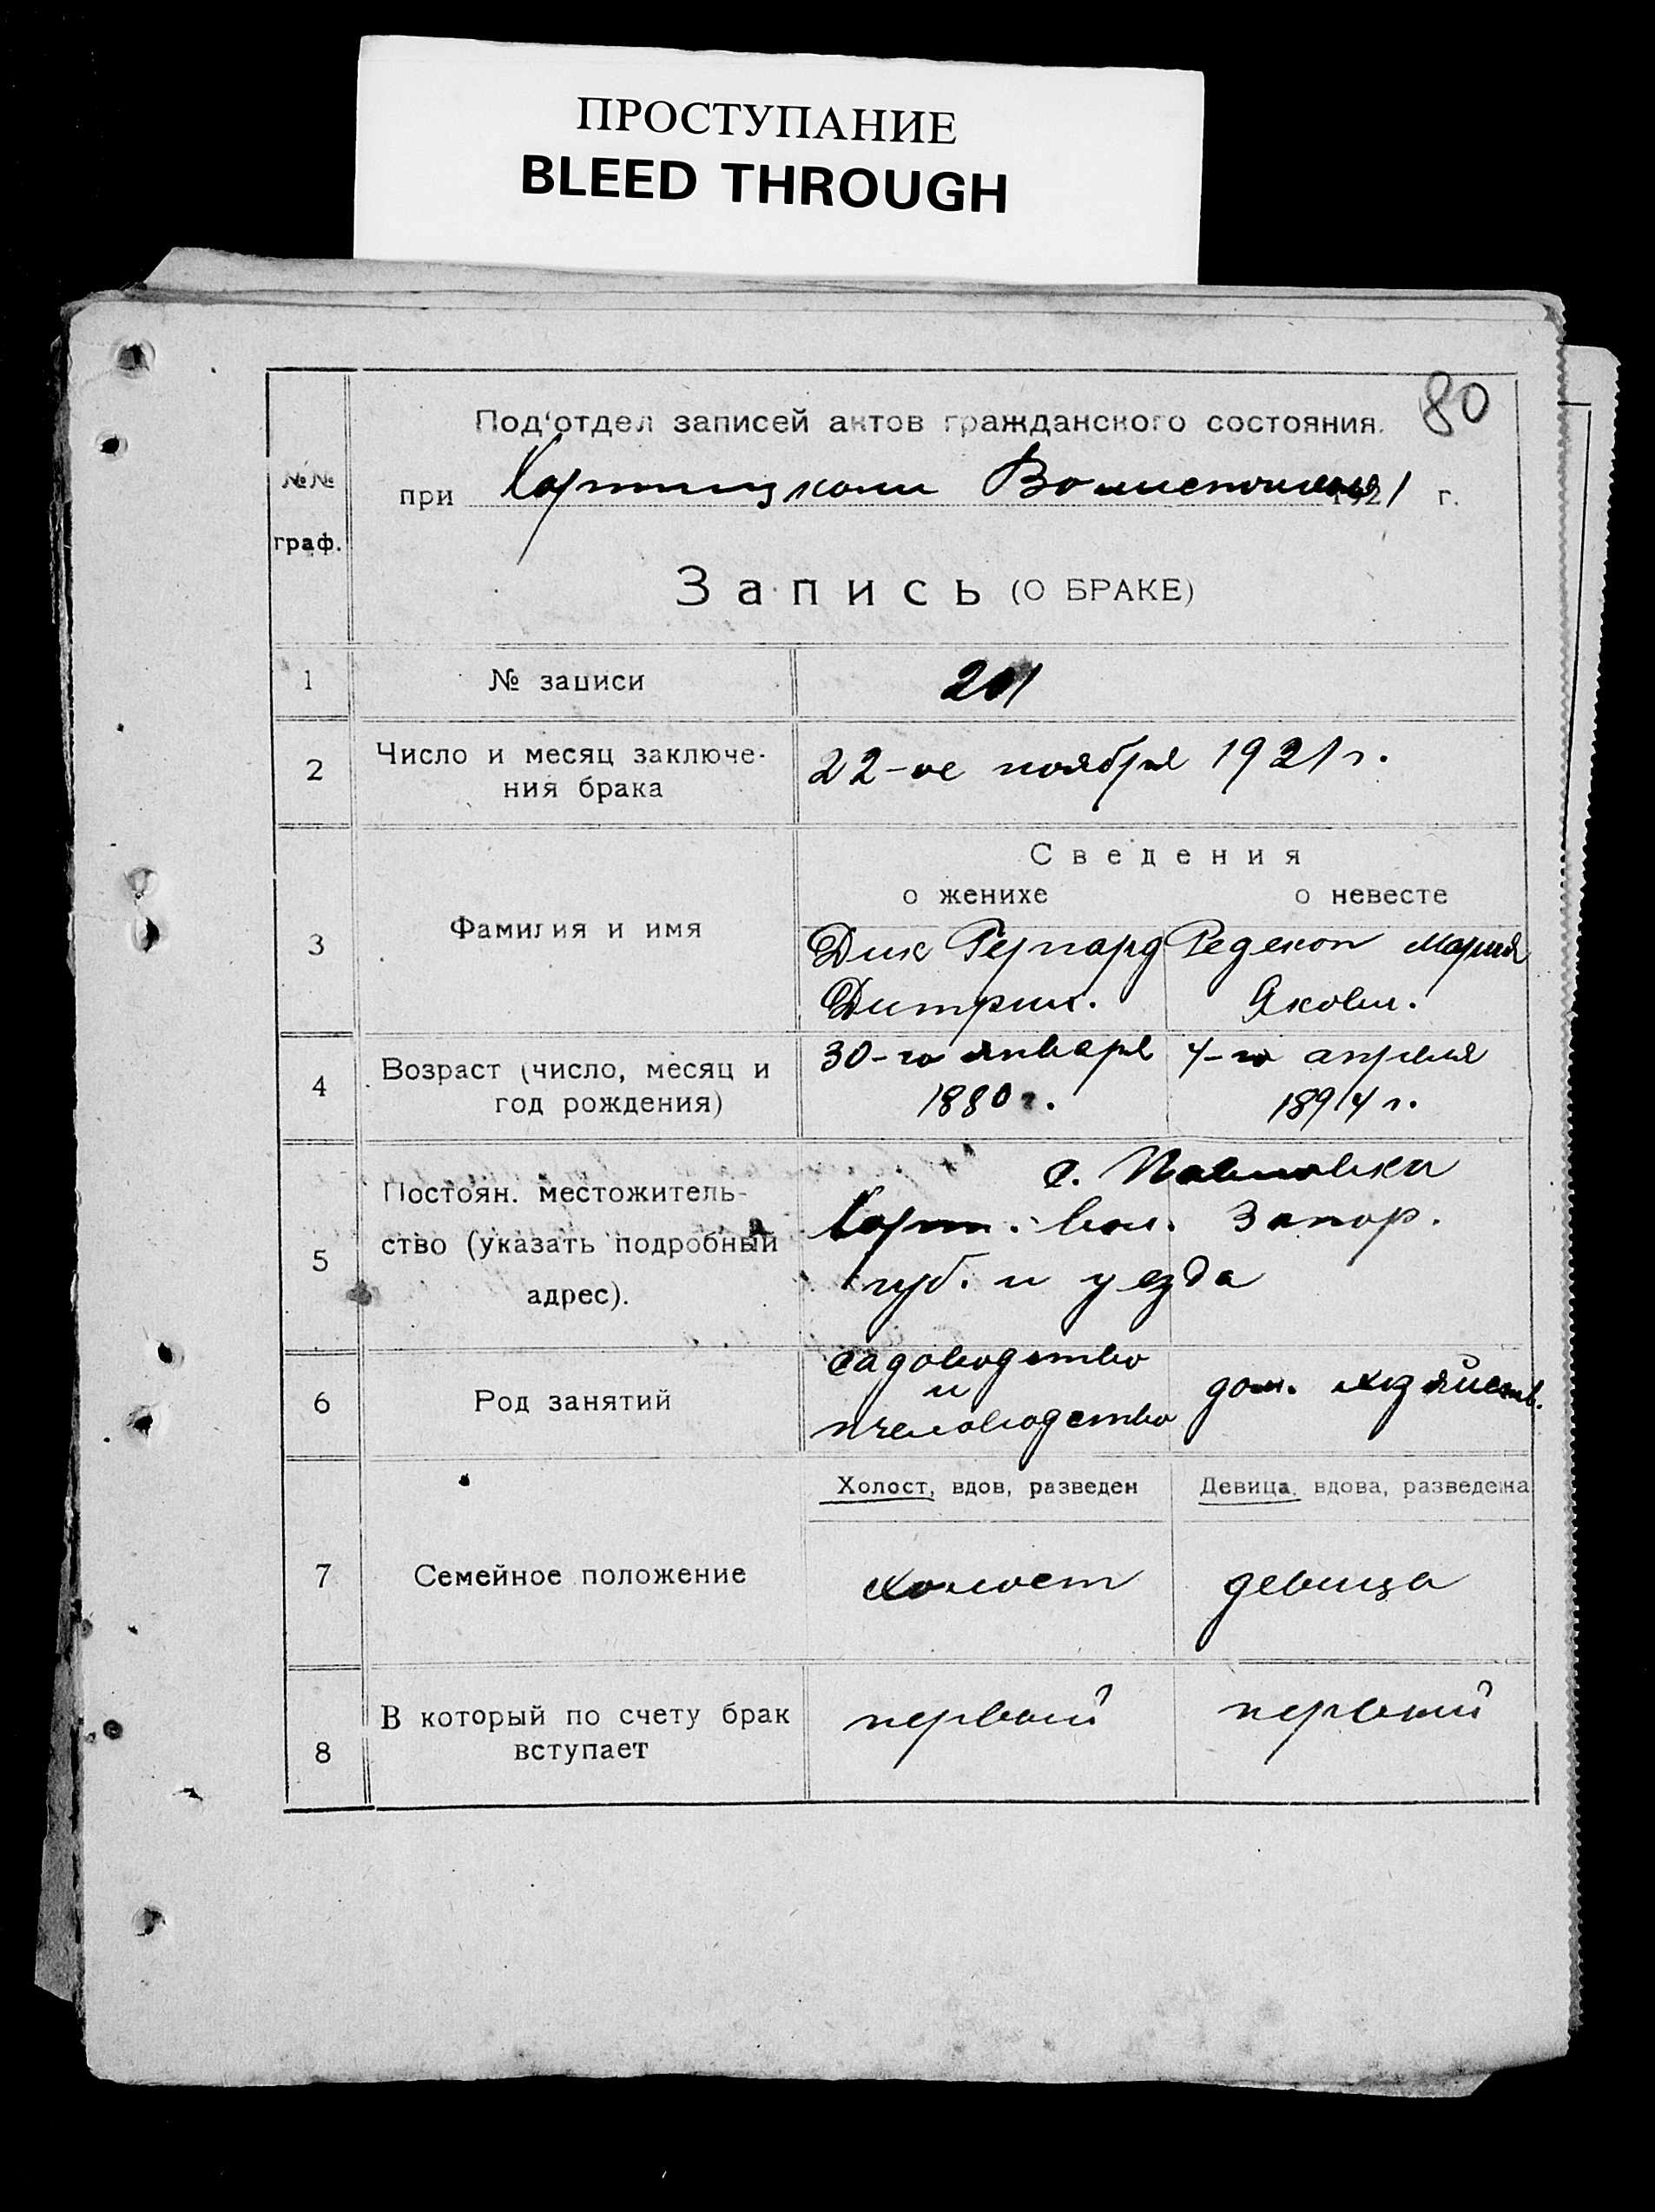 ПРОСТУПАНИЕ
BLEED THROUGH
80
Под'отдел записей актов гражданского состояния.
№№ граф.
при Хортицком Волисполкоме 1921 г.
Запись (О БРАКЕ)
1 № записи 201
2 Число и месяц заключе-
ния брака 22-ое ноября 1921 г.
Сведения
о женихе о невесте
3 Фамилия и имя Дик Гергард Редекоп Мария
Дитрих. Яковл.
4 Возраст (число, месяц и
год рождения) 30-го января 4-го апреля
1880 г. 1894 г.
5 Постоян. местожитель-
ство (указать подробный
адрес).
с. Павловка
Хорт. вол. Запор.
губ. и уезда
6 Род занятий садоводство
и
пчеловодство дом. хозяйств.
Холост, вдов, разведен Девица, вдова, разведена
7 Семейное положение холост девица
8 В который по счету брак
вступает первый первый